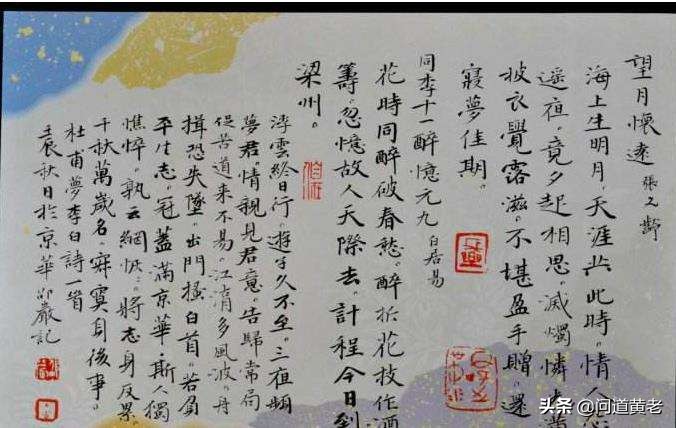 望月懷遠 張九齡
海上生明月。天涯共此時。情人怨
遥夜。竟夕起相思。滅燭憐光滿
披衣覺露滋。不堪盈手贈。還
寢夢佳期。
同李十一醉憶元九 白居易
花時同醉破春愁。醉折花枝作酒
籌。忽憶故人天際去。計程今日到
梁州。
浮雲終日行。遊子久不至。三夜頻
夢君。情親見君意。告歸常局
促。苦道来不易。江湖多風波。舟
楫恐失墜。出門搔白首。若負
平生志。冠蓋滿京華。斯人獨
憔悴。孰云網恢。將老身反累。
千秋萬歲名。寂寞身後事。
杜甫夢李白詩一首
壬辰秋日於京華 嚴記
头条 @问道黄老